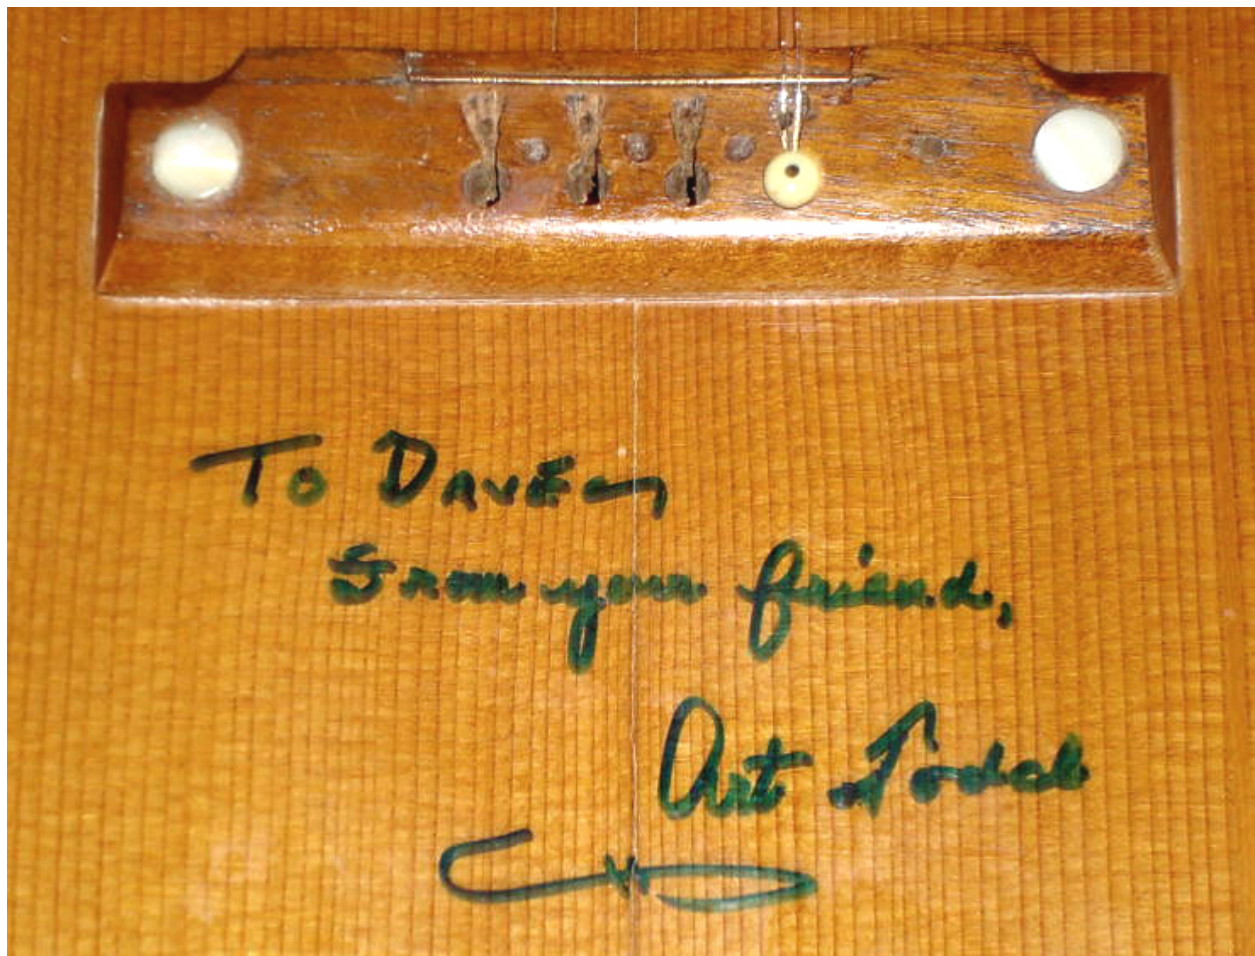 To DAVE
From your friend,
Art Todd